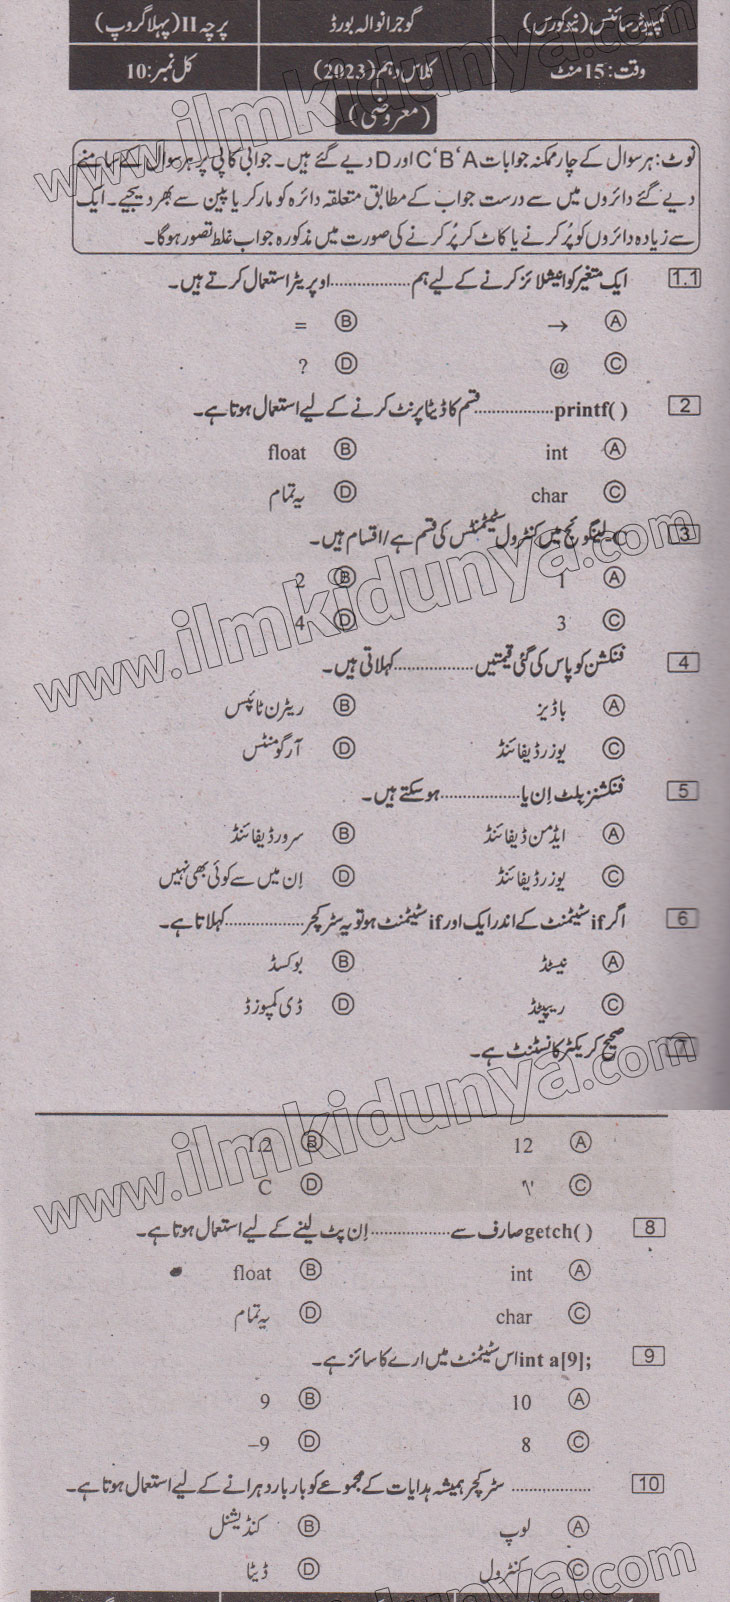 کمپیوٹر سائنس (نیو کورس) گوجرانوالہ بورڈ پرچہ II (پہلا گروپ)
وقت: 15 منٹ کلاس دہم (2023) کل نمبر: 10
(معروضی)
نوٹ: ہر سوال کے چار ممکنہ جوابات A، B، C اور D دیے گئے ہیں۔ جوابی کاپی پر ہر سوال کے سامنے
دیے گئے دائروں میں سے درست جواب کے مطابق متعلقہ دائرہ کو مارکر یا پین سے بھر دیجیے۔ ایک
سے زیادہ دائروں کو پُر کرنے یا کاٹ کر پُر کرنے کی صورت میں مذکورہ جواب غلط تصور ہوگا۔
1.1 ایک متغیر کو انیشلائز کرنے کے لیے ہم ................ اوپریٹر استعمال کرتے ہیں۔
A → B =
C @ D ?
2 printf( ) ................ قسم کا ڈیٹا پرنٹ کرنے کے لیے استعمال ہوتا ہے۔
A int B float
C char D یہ تمام
3 C-لینگوئج میں کنٹرول سٹیٹمنٹس کی قسم ہے/اقسام ہیں۔
A 1 B 2
C 3 D 4
4 فنکشن کو پاس کی گئی قیمتیں ................ کہلاتی ہیں۔
A باڈیز B ریٹرن ٹائپس
C یوزر ڈیفائنڈ D آرگومنٹس
5 فنکشنز بلٹ اِن یا ................ ہوسکتے ہیں۔
A ایڈمن ڈیفائنڈ B سرور ڈیفائنڈ
C یوزر ڈیفائنڈ D اِن میں سے کوئی بھی نہیں
6 اگر if سٹیٹمنٹ کے اندر ایک اور if سٹیٹمنٹ ہو تو یہ سٹرکچر ................ کہلاتا ہے۔
A نیسٹڈ B بوکسڈ
C ریپیٹڈ D ڈی کمپوزڈ
7 صحیح کریکٹر کانسٹنٹ ہے۔
A 12 B 1.2
C '\' D C
8 getch( ) صارف سے ................ اِن پٹ لینے کے لیے استعمال ہوتا ہے۔
A int B float
C char D یہ تمام
9 int a[9]; اس سٹیٹمنٹ میں ارے کا سائز ہے۔
A 10 B 9
C 8 D –9
10 ................ سٹرکچر ہمیشہ ہدایات کے مجموعے کو بار بار دہرانے کے لیے استعمال ہوتا ہے۔
A لوپ B کنڈیشنل
C کنٹرول D ڈیٹا
www.ilmkidunya.com
www.ilmkidunya.com
www.ilmkidunya.com